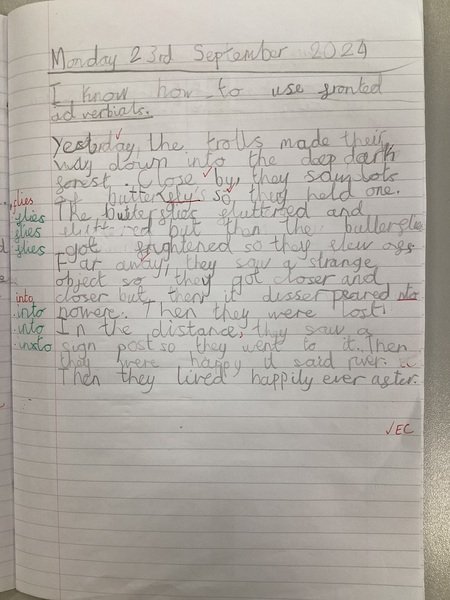 Monday 23rd September 2024
I know how to use fronted
adverbials.
Yesterday, the trolls made their
way down into the deep dark
forest. Close by, they saw lots
of butterfly's so, they held one.
flies
The butterflies fluttered and
flies
flies
but then the butterflies
flies
got frightened so they flew off
Far away, they saw a strange
object so they got closer and
into
closer but then it disserpeared nto
into
power. Then they were lost.
into
In the distance, they saw a
inxto
sign post so they went to it. Then
they were happy it said river.
Then they lived happily ever after.
✓EC